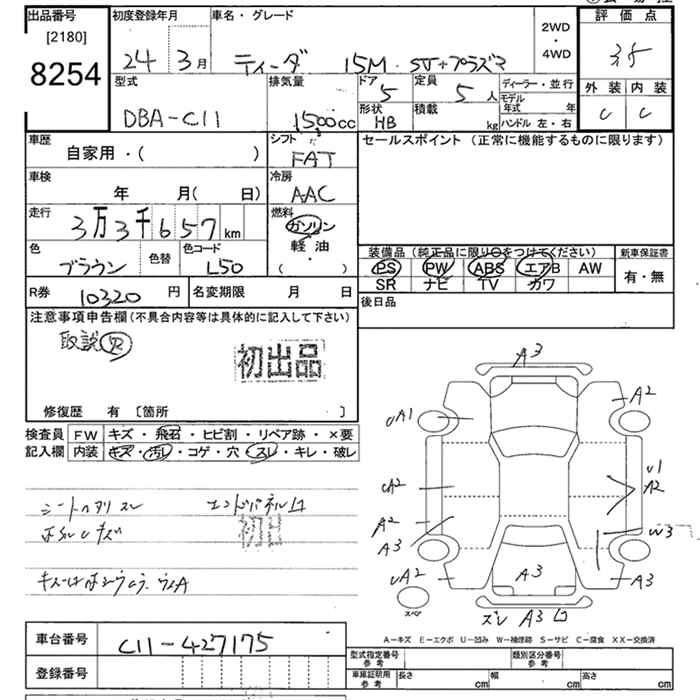 出品番号 初度登録年月 車名・グレード 評価点
[2180]
8254
24年 3月 ティーダ 15M・SV+プラズマ 2WD・4WD
型式 排気量 ドア 定員 ディーラー・並行 外装 内装
DBA-C11 1500cc 5 5人 モデル年式 年 C C
形状 積載 ハンドル 左・右
HB kg
車歴 シフト セールスポイント (正常に機能するものに限ります)
自家用・( ) FAT
車検 冷房
年 月( 日) AAC
走行 燃料
3万3千657km ガソリン
色 色替 色コード 軽油
ブラウン L50 ( ・ )
装備品 (純正品に限り○をつけてください) 新車保証書
PS PW ABS エアB AW 有・無
SR ナビ TV カワ
R券 10320円 名変期限 月 日 後日品
注意事項申告欄(不具合内容等は具体的に記入して下さい)
取説
初出品
修復歴 有 〔箇所 〕
検査員 FW キズ・飛石・ヒビ割・リペア跡・×要
記入欄 内装 キズ・汚レ・コゲ・穴・スレ・キレ・破レ
A3
A2
UA1
U1
A2
UA2
A2
W3
A3
UA2
A3
A3
スペア
スレ A3
A-キズ E-エクボ U-凹み W-補修跡 S-サビ C-腐食 XX-交換済
車台番号 C11-427175
登録番号
型式指定番号 参考 類別区分番号 参考
車庫証明用 参考 長さ cm 幅 cm 高さ cm